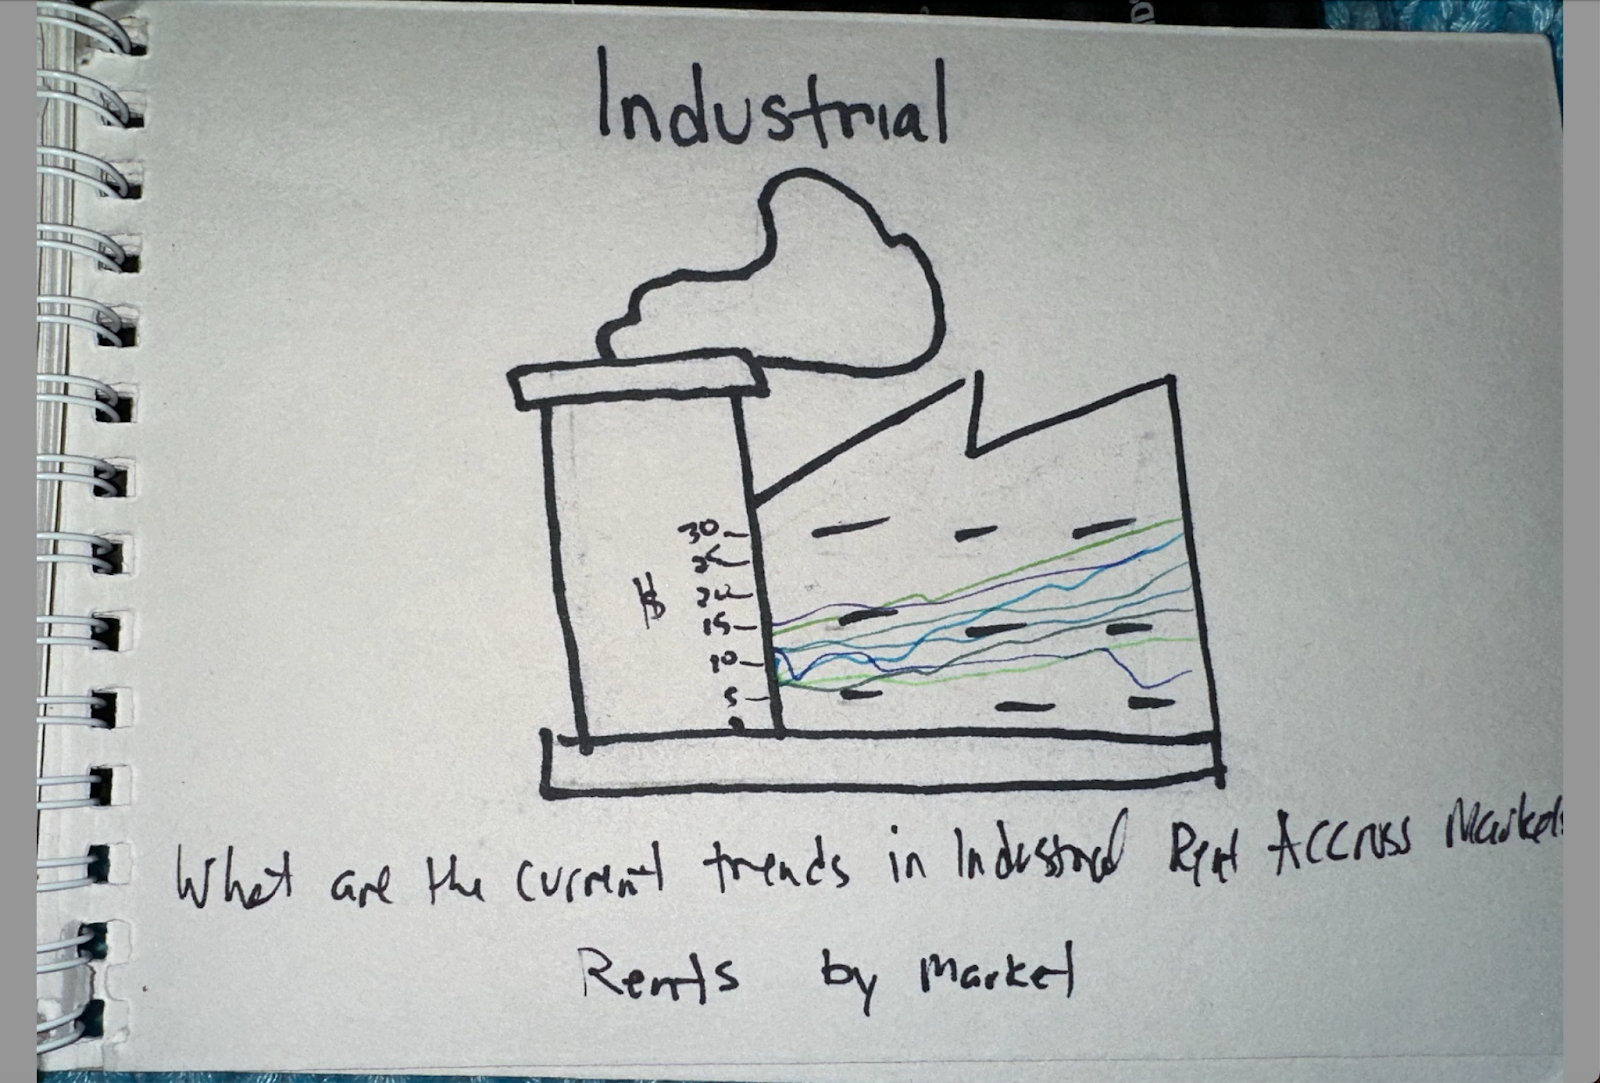 Industrial
30
25
20
$
15
10
5
0
What are the current trends in Industrial Rent Accross Markets
Rents by Market